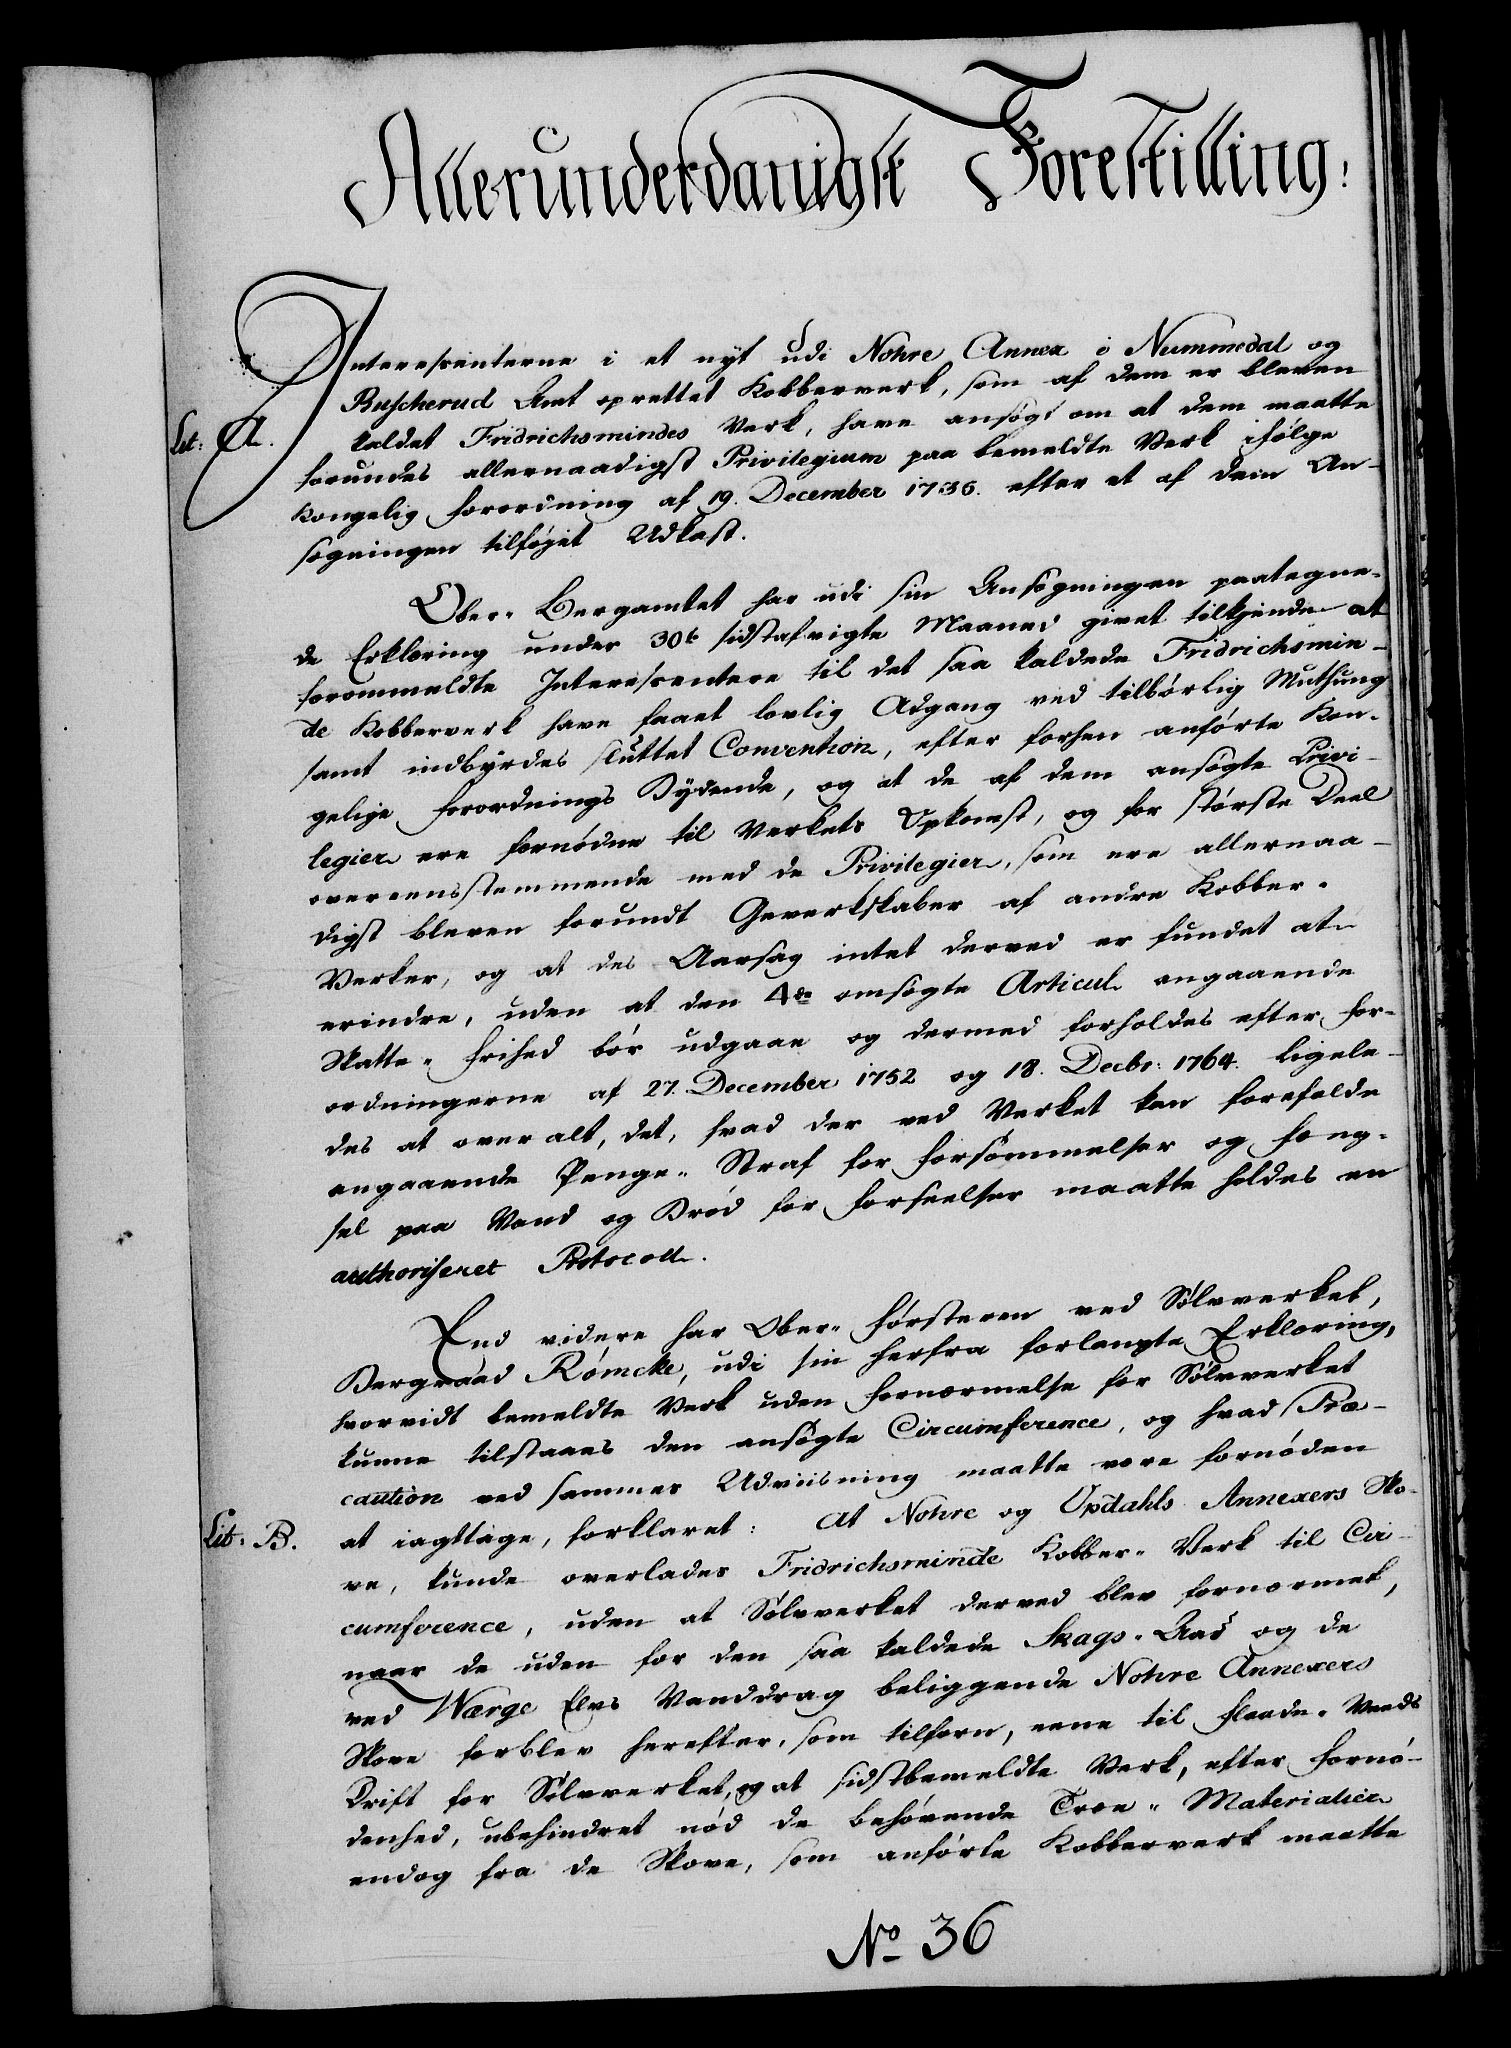 Allerunderdanigst Forestilling:
Interessenterne i et nyt udi Nohre Annex i Nummedal og
Buscherud Amt oprettet Kobberverk, som af dem er bleven
Lit: A. kaldet Fridrichsmindes Verk, have ansøgt om at dem maatte
forundes allernaadigst Privilegium paa bemeldte Verk ifølge
Kongelig Forordning af 19. December 1736. efter et af dem An-
søgningen tilføjet Udkast.
Ober- Bergamtet har udi sin Ansøgningen paategne-
de Erklæring under 30te sidstafvigte Maaned givet tilkjende at
forommeldte Interessentere til det saa kaldede Fridrichsmin-
de Kobberverk have faaet lovlig Adgang ved tilbørlig Muthung
samt indbyrdes sluttet Convention, efter forhen anførte Kon-
gelige Forordnings Bydende, og at de af dem ansøgte Privi-
legier ere fornødne til Verkets Opkomst, og for største Deel
overeensstemmende med de Privilegier, som ere allernaa-
digst bleven forundt Gewerkskaber af andre Kobber-
Verker, og at des Aarsag intet derved er fundet at
erindre, uden at den 4de omsøgte Articul angaaende
Skatte- Frihed bør udgaae og dermed forholdes efter For-
ordningerne af 27. December 1752 og 18. Decbr: 1764. ligele-
des at over alt, det, hvad der ved Verket kan forefalde
angaaende Penge- Straf for Forsømmelser og Fæng-
sel paa Vand og Brød for Forseelser maatte holdes en
authoriseret Protocoll.
End videre har Ober- Førsteren ved Sølvverket,
Bergraad Rømcke, udi sin herfra forlangte Erklæring,
hvorvidt bemeldte Verk uden Fornærmelse for Sølvverket
kunne tilstaaes den ansøgte Circumference, og hvad Præ-
caution ved sammes Udviisning maatte være fornøden
Lit: B. at iagttage, forklaret: At Nohre og Opdahls Annexers Sko-
ve, kunde overlades Fridrichsminde Kobber- Verk til Cir-
cumference, uden at Sølvverket derved blev fornærmet,
naar de uden for den saa kaldede Skags- Aas og de
ved Wærge Elvs Vanddrag beliggende Nohre Annexers
Skove forblev herefter, som tilforn, eene til Flaade- Veeds
Drift for Sølvverket, og at sidstbemeldte Verk, efter Fornø-
denhed, ubehindret nød de behøvende Træe- Materialier
endog fra de Skove, som anførte Kobberverk maatte
No 36